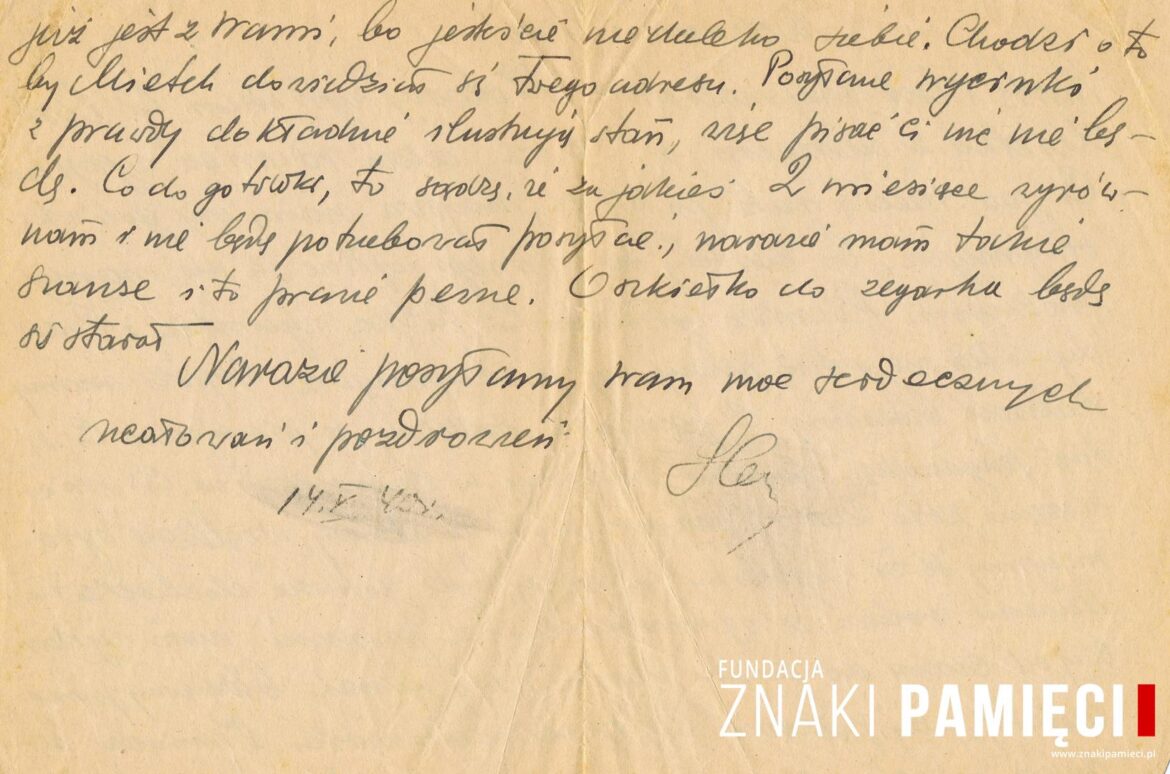 już jest z Wami, bo jesteście niedaleko siebie. Chodzi o to
by Mietek dowiedział się Twego adresu. Posyłane wycinki
z prawdy dokładnie ilustrują stan, więc pisać Ci nic nie bę-
dę. Co do gotówki, to sądzę, że za jakieś 2 miesiące wyrów-
nam i nie będę potrzebował posyłać, narazie mam takie
szanse i to prawie pewne. O szkiełko do zegarka będę
się starał
Narazie posyłamy Wam moc serdecznych
ucałowań i pozdrowień
14.V 40r.
FUNDACJA
ZNAKI PAMIĘCI
www.znakipamieci.pl